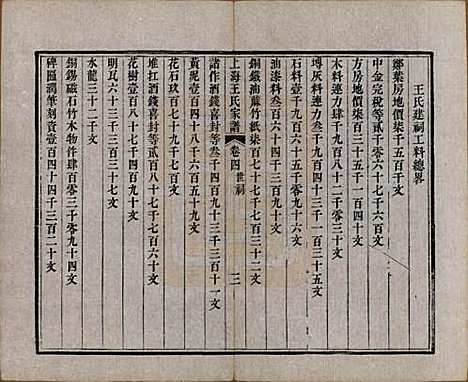 王氏建祠工料總畧
鄰業房地價柒千五百千文
中金完稅等貳千零三十七千六百文
方房地價柒百三十五千一百四十文
木料連力肆千九百一十二千零三十文
塼灰料連力叁千四百三十三千一百三十五文
石料壹千九百六十四千七百三十文
油漆料叁百六十四千三百七十文
銅鐵油蔴竹紙柒百七十七千三百三十二文
上海王氏家譜 卷四 世祠 三
諸作酒錢喜封等叁千四百九十三千三百一十文
黃泥壹百四十八千六百五十九文
花石玖百七十九千七百五十九文
堆扛酒錢喜封等貳百八十七千七百六十文
花樹壹百八十七千四百九十文
明瓦六十三千三百三十七文
水龍三十二千文
錫鐋磁石竹木物件肆百零三千九百五十四文
碑匾潤筆刻資壹百四十四千三百二十文